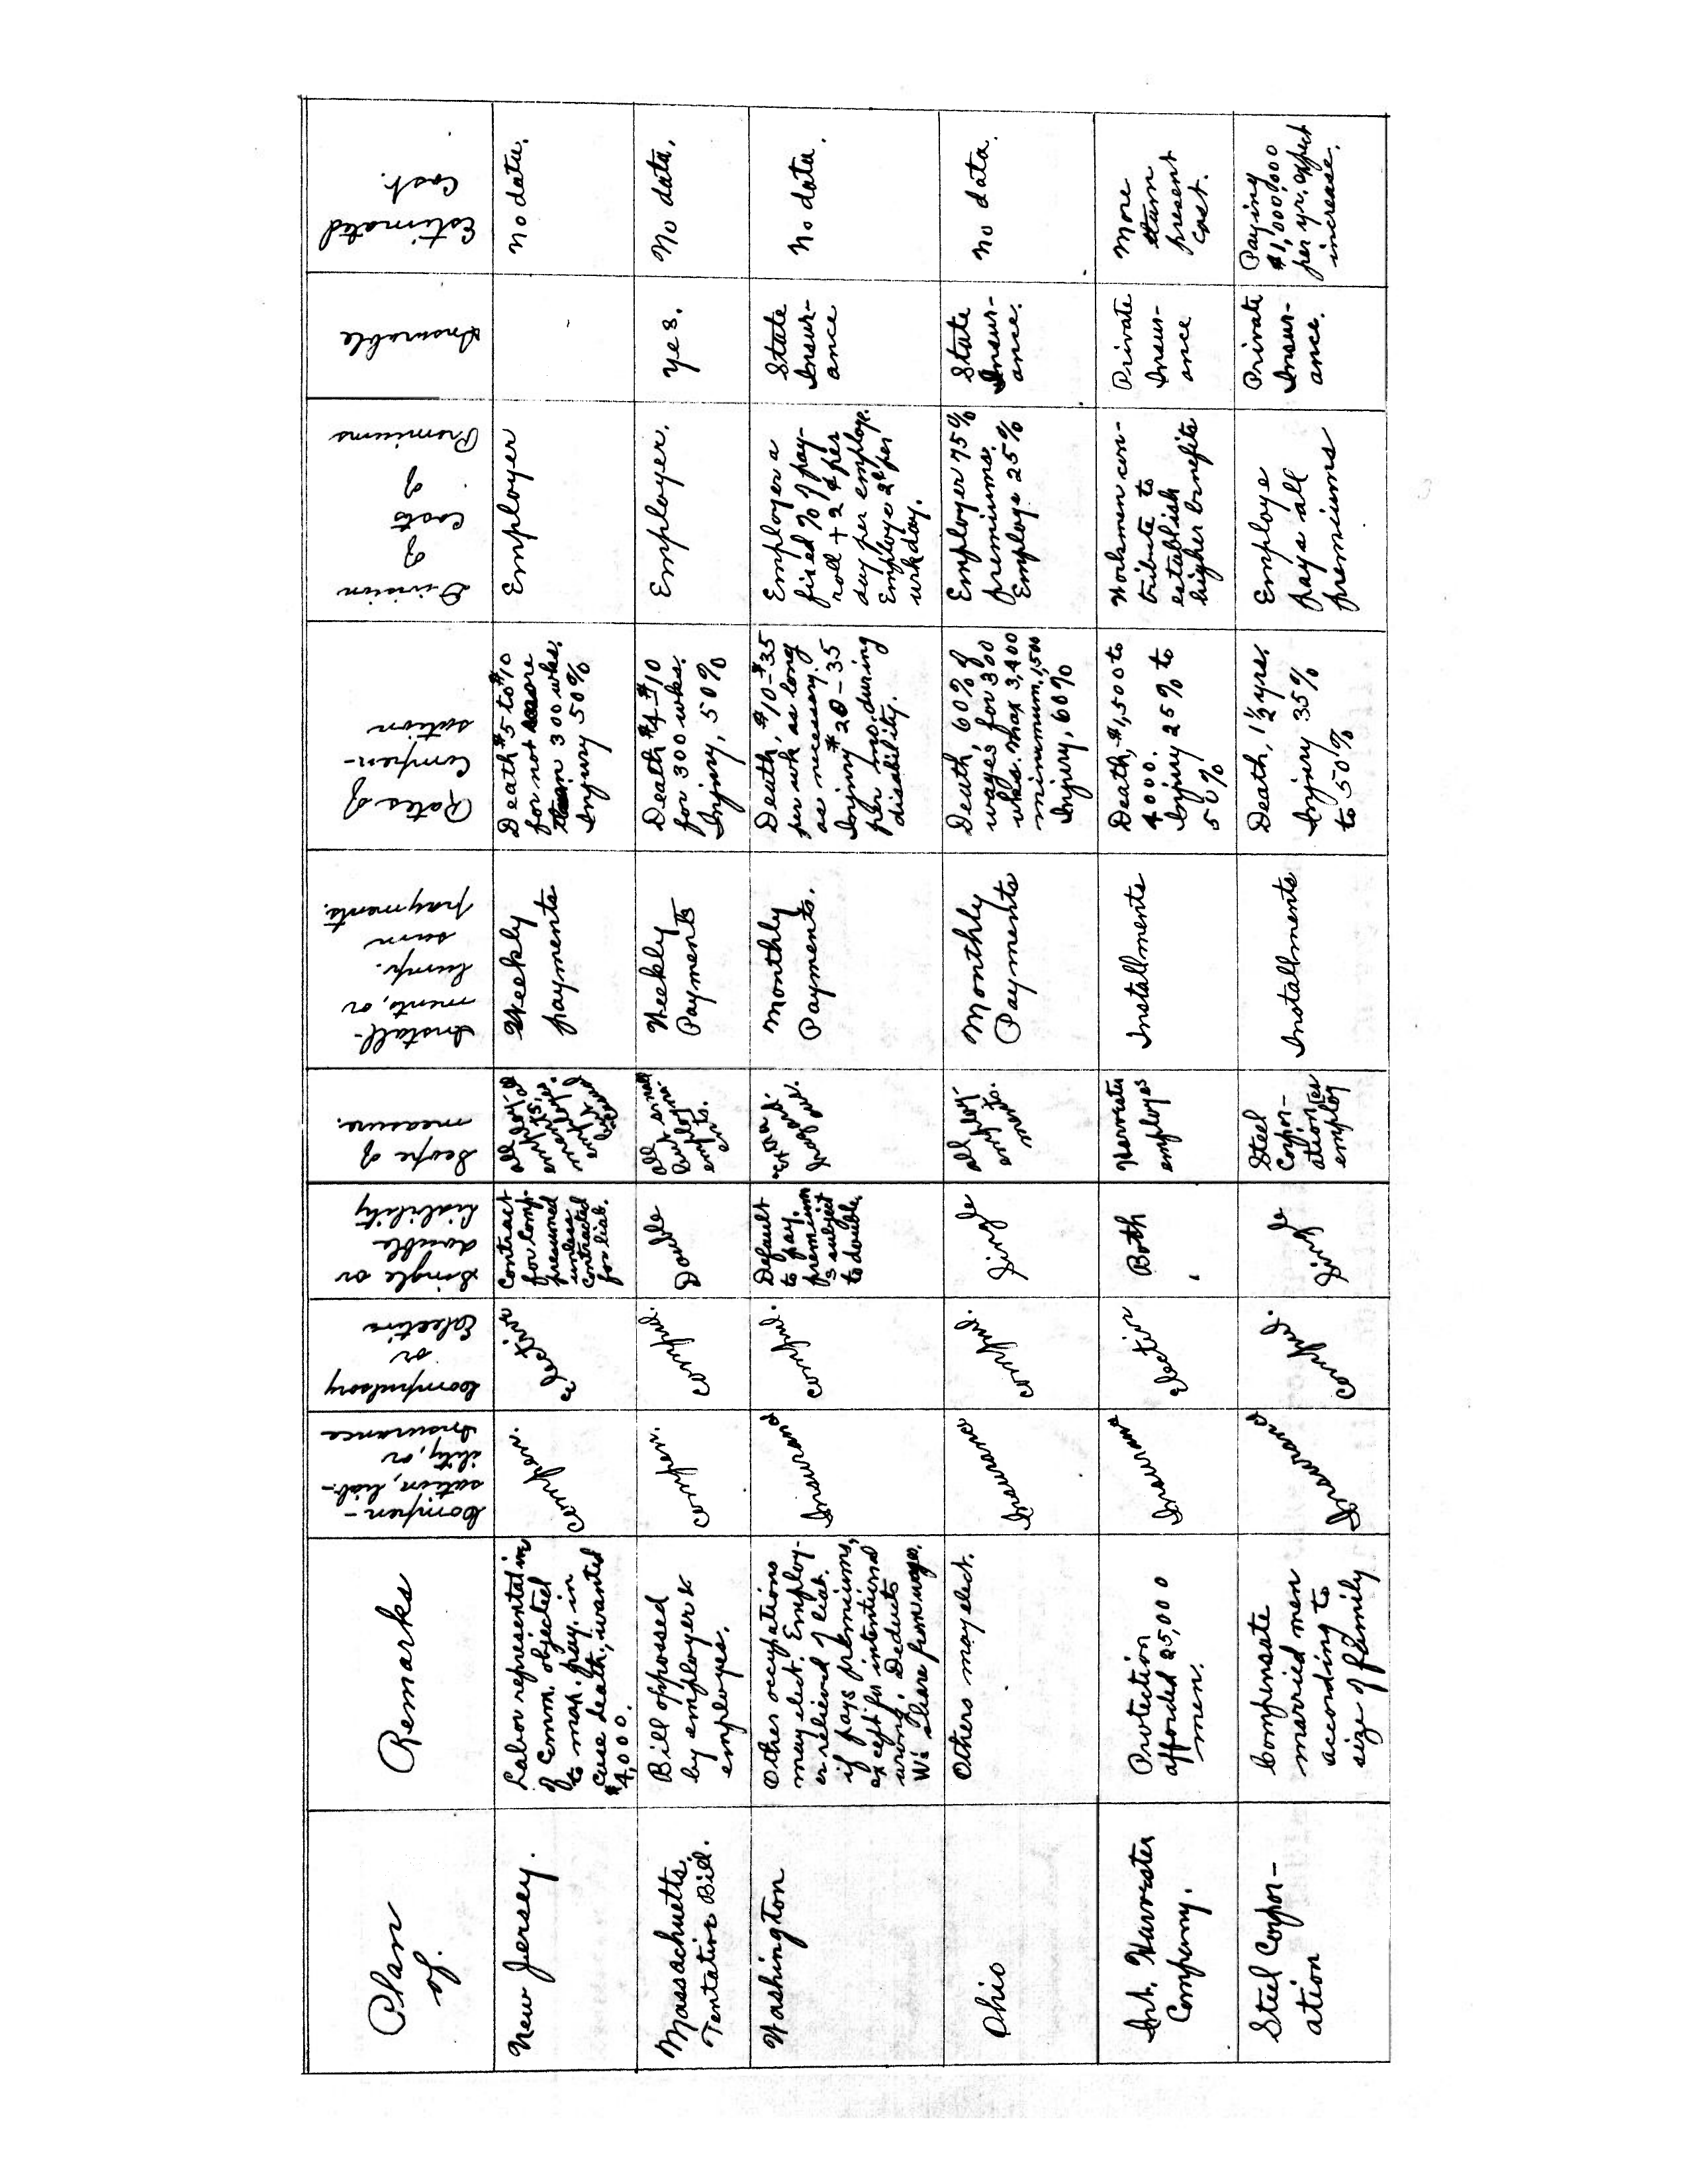 Plan
of.
Remarks
Compen-
sation, liab-
ility, or
Insurance
Compulsory
or
Elective
Single or
double
liability
Scope of
measure.
Install-
ments, or
lump.
sum
payments.
Rates of
Compen-
sation
Division
of
Costs
of
Premiums
Insurable
Estimated
Cost.
New Jersey.
Labor representative
of Comm. objected
to max. pay. in
case death, wanted
$4,000.
Compen.
elective
Contract
for Comp.
presumed
unless
contracted
for liab.
all
Weekly
payments
Death $5 to $10
for not more
than 300 wks.
Injury 50%
Employer
no data.
Massachuetts.
Tentative Bill.
Bill opposed
by employer &
employe.
compen.
compul.
Double
all
but small
employm-
ents.
Weekly
Payments
Death $4-$10
for 300 wks.
Injury, 50%
Employer.
yes.
No data.
Washington
Other occupations
may elect. Employ-
er relieved of liab.
if pays premiums,
except for intentional
wrong. Deducts
W's share from wages.
Insurance
compul.
Default
to pay.
premium
s subject
to double.
Extra-
haz.
Monthly
Payments.
Death, $10-$35
per wk as long
as necessary.
Injury $20-35
per mo. during
disability.
Employer a
fixed % of pay-
roll + 2¢ per
day per employe.
Employe 2¢ per
wrkday.
State
Insur-
ance
No data.
Ohio
Others may elect.
Insurance
compul.
Single
all employ-
ments.
Monthly
Payments
Death, 60% of
wages for 300
wks. Max 3,400
minimum, 1,500
Injury, 60%
Employer 75%
premiums.
Employe 25%
State
Insur-
ance.
no data.
Int. Harvester
Company.
Protection
afforded 25,000
men.
Insurance
elective
Both
Harvester
employes
Installments
Death, $1,500 to
4000.
Injury 25% to
50%
Workmen con-
tribute to
establish
higher benefits
Private
Insur-
ance
More
than
present
cost.
Steel Corpor-
ation
Compensate
married men
according to
size of family
Insurance
compul.
Single
Steel
Corpor-
ation
employes
Installments
Death, 1½ yrs.
Injury 35%
to 50%
Employe
pays all
premiums
Private
Insur-
ance.
Paying
$1,000,000
per yr. expect
increase.